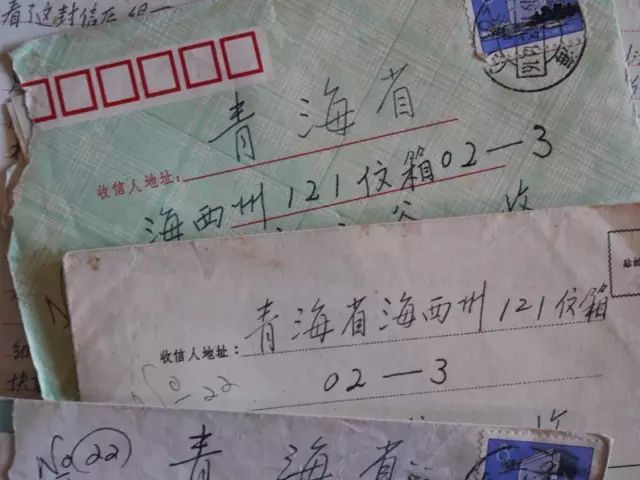 看了这封信后
青海省
收信人地址:
海西州121信箱02—3
收
青海省海西州121信箱
收信人地址:
02—3
No 22
收
No 22
青海省